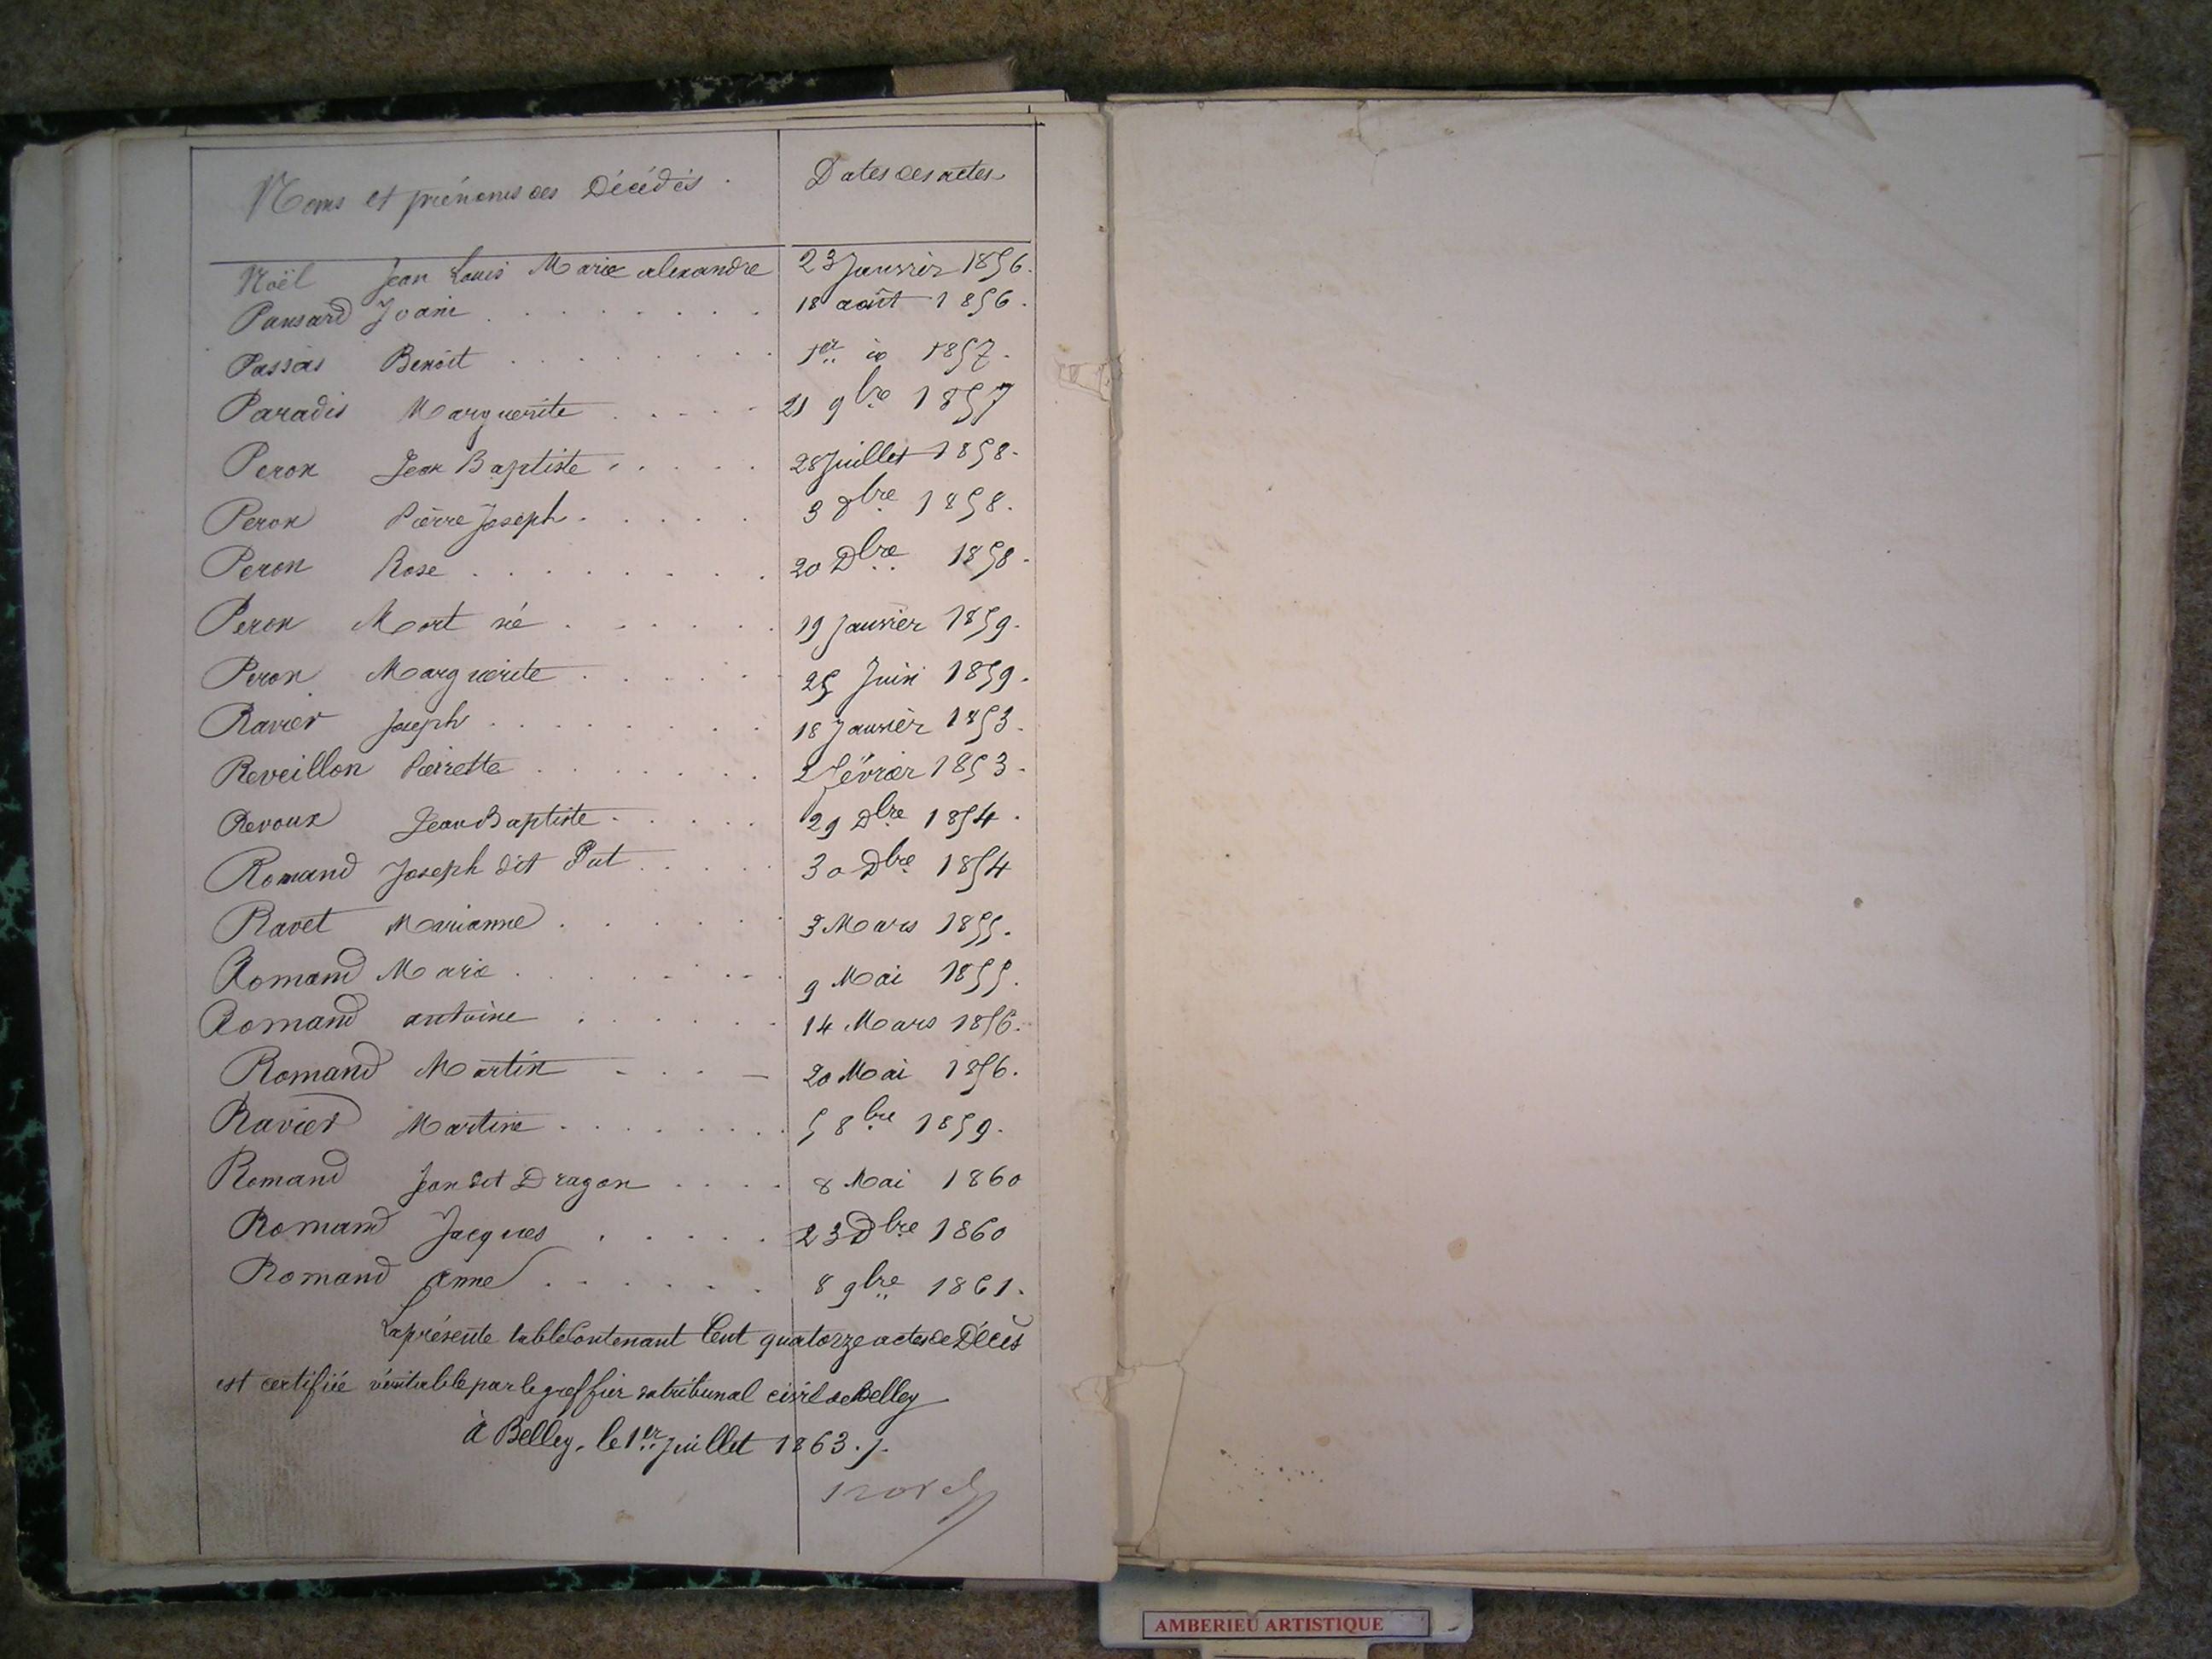 Noms et prénoms des Décédés. Dates des actes
Noël Jean Louis Marie alexandre 23 Janvier 1856.
Pansard Joani 18 août 1856.
Passas Benoit 1er do 1857.
Paradis Marguerite 21 9bre 1857
Peron Jean Baptiste 28 Juillet 1858.
Peron Pierre Joseph 3 8bre 1858.
Peron Rose 20 Dbre 1858.
Peron Mort né 19 Janvier 1859.
Peron Marguerite 25 Juin 1859.
Ravier Joseph 18 Janvier 1853.
Reveillon Pierrette 2 février 1853.
Revoux Jean Baptiste 29 Dbre 1854.
Romand Joseph dit Put 30 Dbre 1854
Ravet Marianne 3 Mars 1855.
Romand Marie 9 Mai 1855.
Romand antoine 14 Mars 1856.
Romand Martin 20 Mai 1856.
Ravier Martine 5 8bre 1859.
Romand Jean dit Dragon 8 Mai 1860
Romand Jacques 23 Dbre 1860
Romand Anne 8 9bre 1861.
La présente table Contenant Cent quatorze actes de Décès
est certifiée véritable par le greffier du tribunal civil de Belley
à Belley, le 1er Juillet 1863.
AMBERIEU ARTISTIQUE